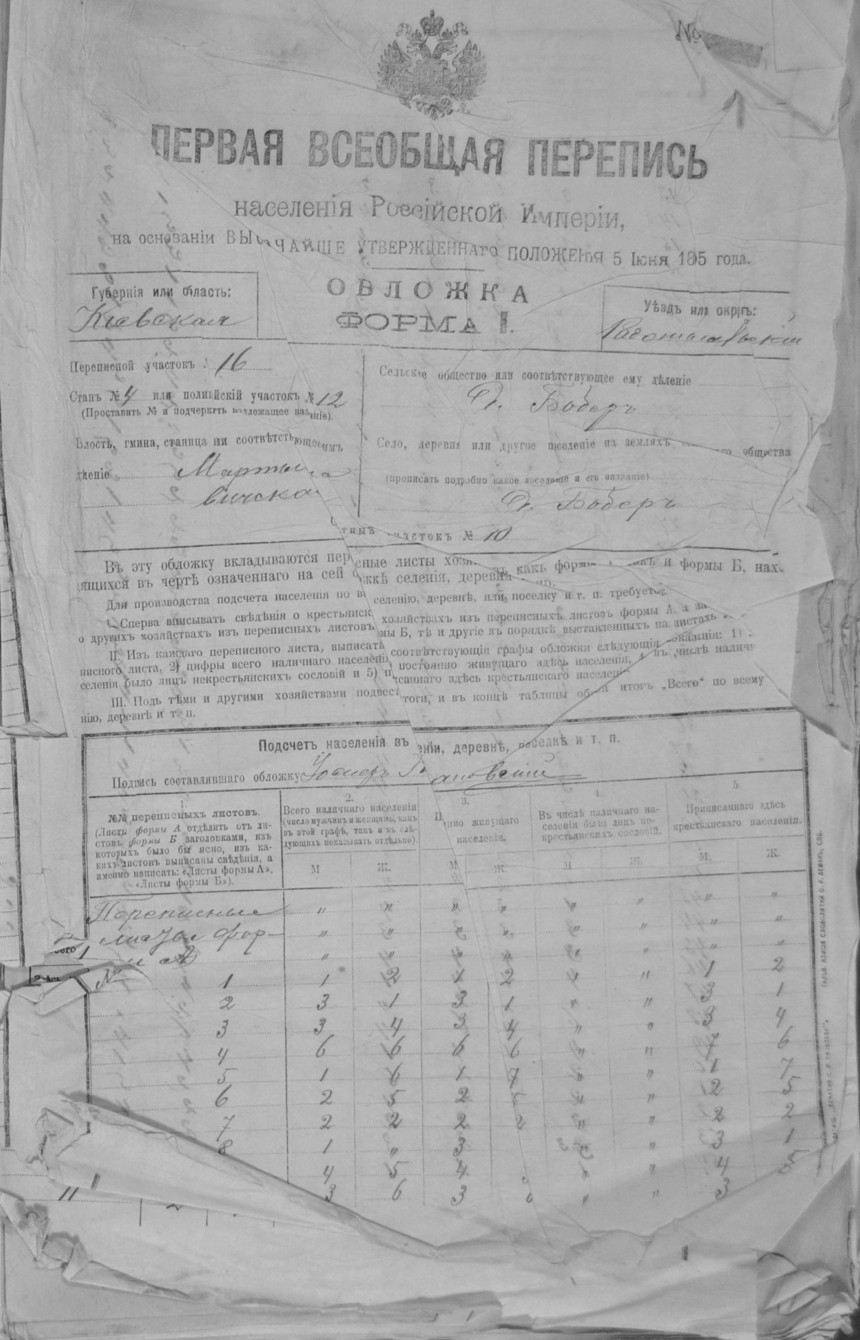 №
ПЕРВАЯ ВСЕОБЩАЯ ПЕРЕПИСЬ
населенія Россійской Имперіи,
на основаніи ВЫ ЧАЙШЕ УТВЕРЖДЕННАГО ПОЛОЖЕНІЯ 5 Іюня 195 года.
ОБЛОЖКА
ФОРМА I.
Губернія или область:
Кіевская
Уѣздъ или округъ:
Переписной участокъ 16
Станъ № 4 или полицейскій участокъ № 12
(Проставить № и подчеркнуть надлежащее назв
Волость, гмина, станица или соотвѣтствующ имъ
дѣленіе Марты
вичска
Сельское общество или соотвѣтствующее ему дѣленіе
Д. Боберъ
Село, деревня или другое поселеніе на земляхъ общества
(прописать подробно какое поселеніе и его названіе)
Д. Боберъ
участокъ № 10
Въ эту обложку вкладываются пере сные листы хозя какъ формы и формы Б, нах
ящихся въ чертѣ означеннаго на сей жкѣ селенія, деревни
Для производства подсчета населенія по в селенію, деревнѣ, или поселку и т. п. требуется
I. Сперва вписывать свѣдѣнія о крестьянск хозяйствахъ изъ переписныхъ листовъ формы А, а за
о другихъ хозяйствахъ изъ переписныхъ листовъ мы Б, тѣ и другіе въ порядкѣ выставленныхъ на листахъ
II. Изъ каждаго переписного листа, выписать соотвѣтствующія графы обложки слѣдующія показанія: 1)
писного листа, 2) цифры всего наличнаго населенія постоянно живущаго здѣсь населенія, въ числѣ налич
селенія было лицъ некрестьянскихъ сословій и 5) п саннаго здѣсь крестьянскаго населенія
III. Подъ тѣми и другими хозяйствами подвест тоги, и въ концѣ таблицы об й итогъ „Всего“ по всему
нію, деревнѣ и т. п.
Подсчетъ населенія въ еніи, деревнѣ, поселкѣ и т. п.
Подпись составлявшаго обложку
1.
№№ переписныхъ листовъ.
(Листы формы А отдѣлить отъ ли-
стовъ формы Б заголовками, изъ
которыхъ было бы ясно, изъ ка-
кихъ листовъ выписаны свѣдѣнія, а
именно написать: «Листы формы А»,
«Листы формы Б»).
2.
Всего наличнаго населенія
(число мужчинъ и женщинъ, какъ
въ этой графѣ, такъ и въ слѣ-
дующихъ показывать отдѣльно).
3.
нно живущаго
населенія.
4.
Въ числѣ наличнаго на-
селенія было лицъ не-
крестьянскихъ сословій.
5.
Приписаннаго здѣсь
крестьянскаго населенія.
М Ж. М Ж. М Ж. М. Ж.
Переписные " " " " " " " "
листы фор- " " " " " " " "
мы А " " " " " " " "
№ 1 1 2 1 2 " " 1 2
2 3 1 3 1 " " 3 1
3 3 4 3 4 " " 3 4
4 6 6 6 6 " " 7 6
5 1 6 1 7 " " 1 7
6 2 5 2 " " 2 5
7 2 2 2 2 " " 2 2
8 1 " 3 3 " 3 1
4 5 4 " " 4 5
11 3 6 3 6 " " 3